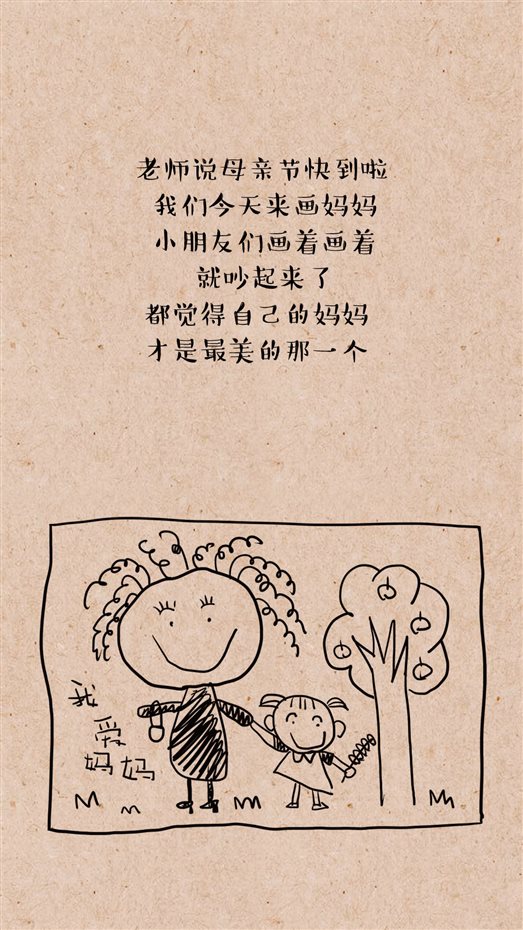 老师说母亲节快到啦
我们今天来画妈妈
小朋友们画着画着
就吵起来了
都觉得自己的妈妈
才是最美的那一个
我
爱
妈妈